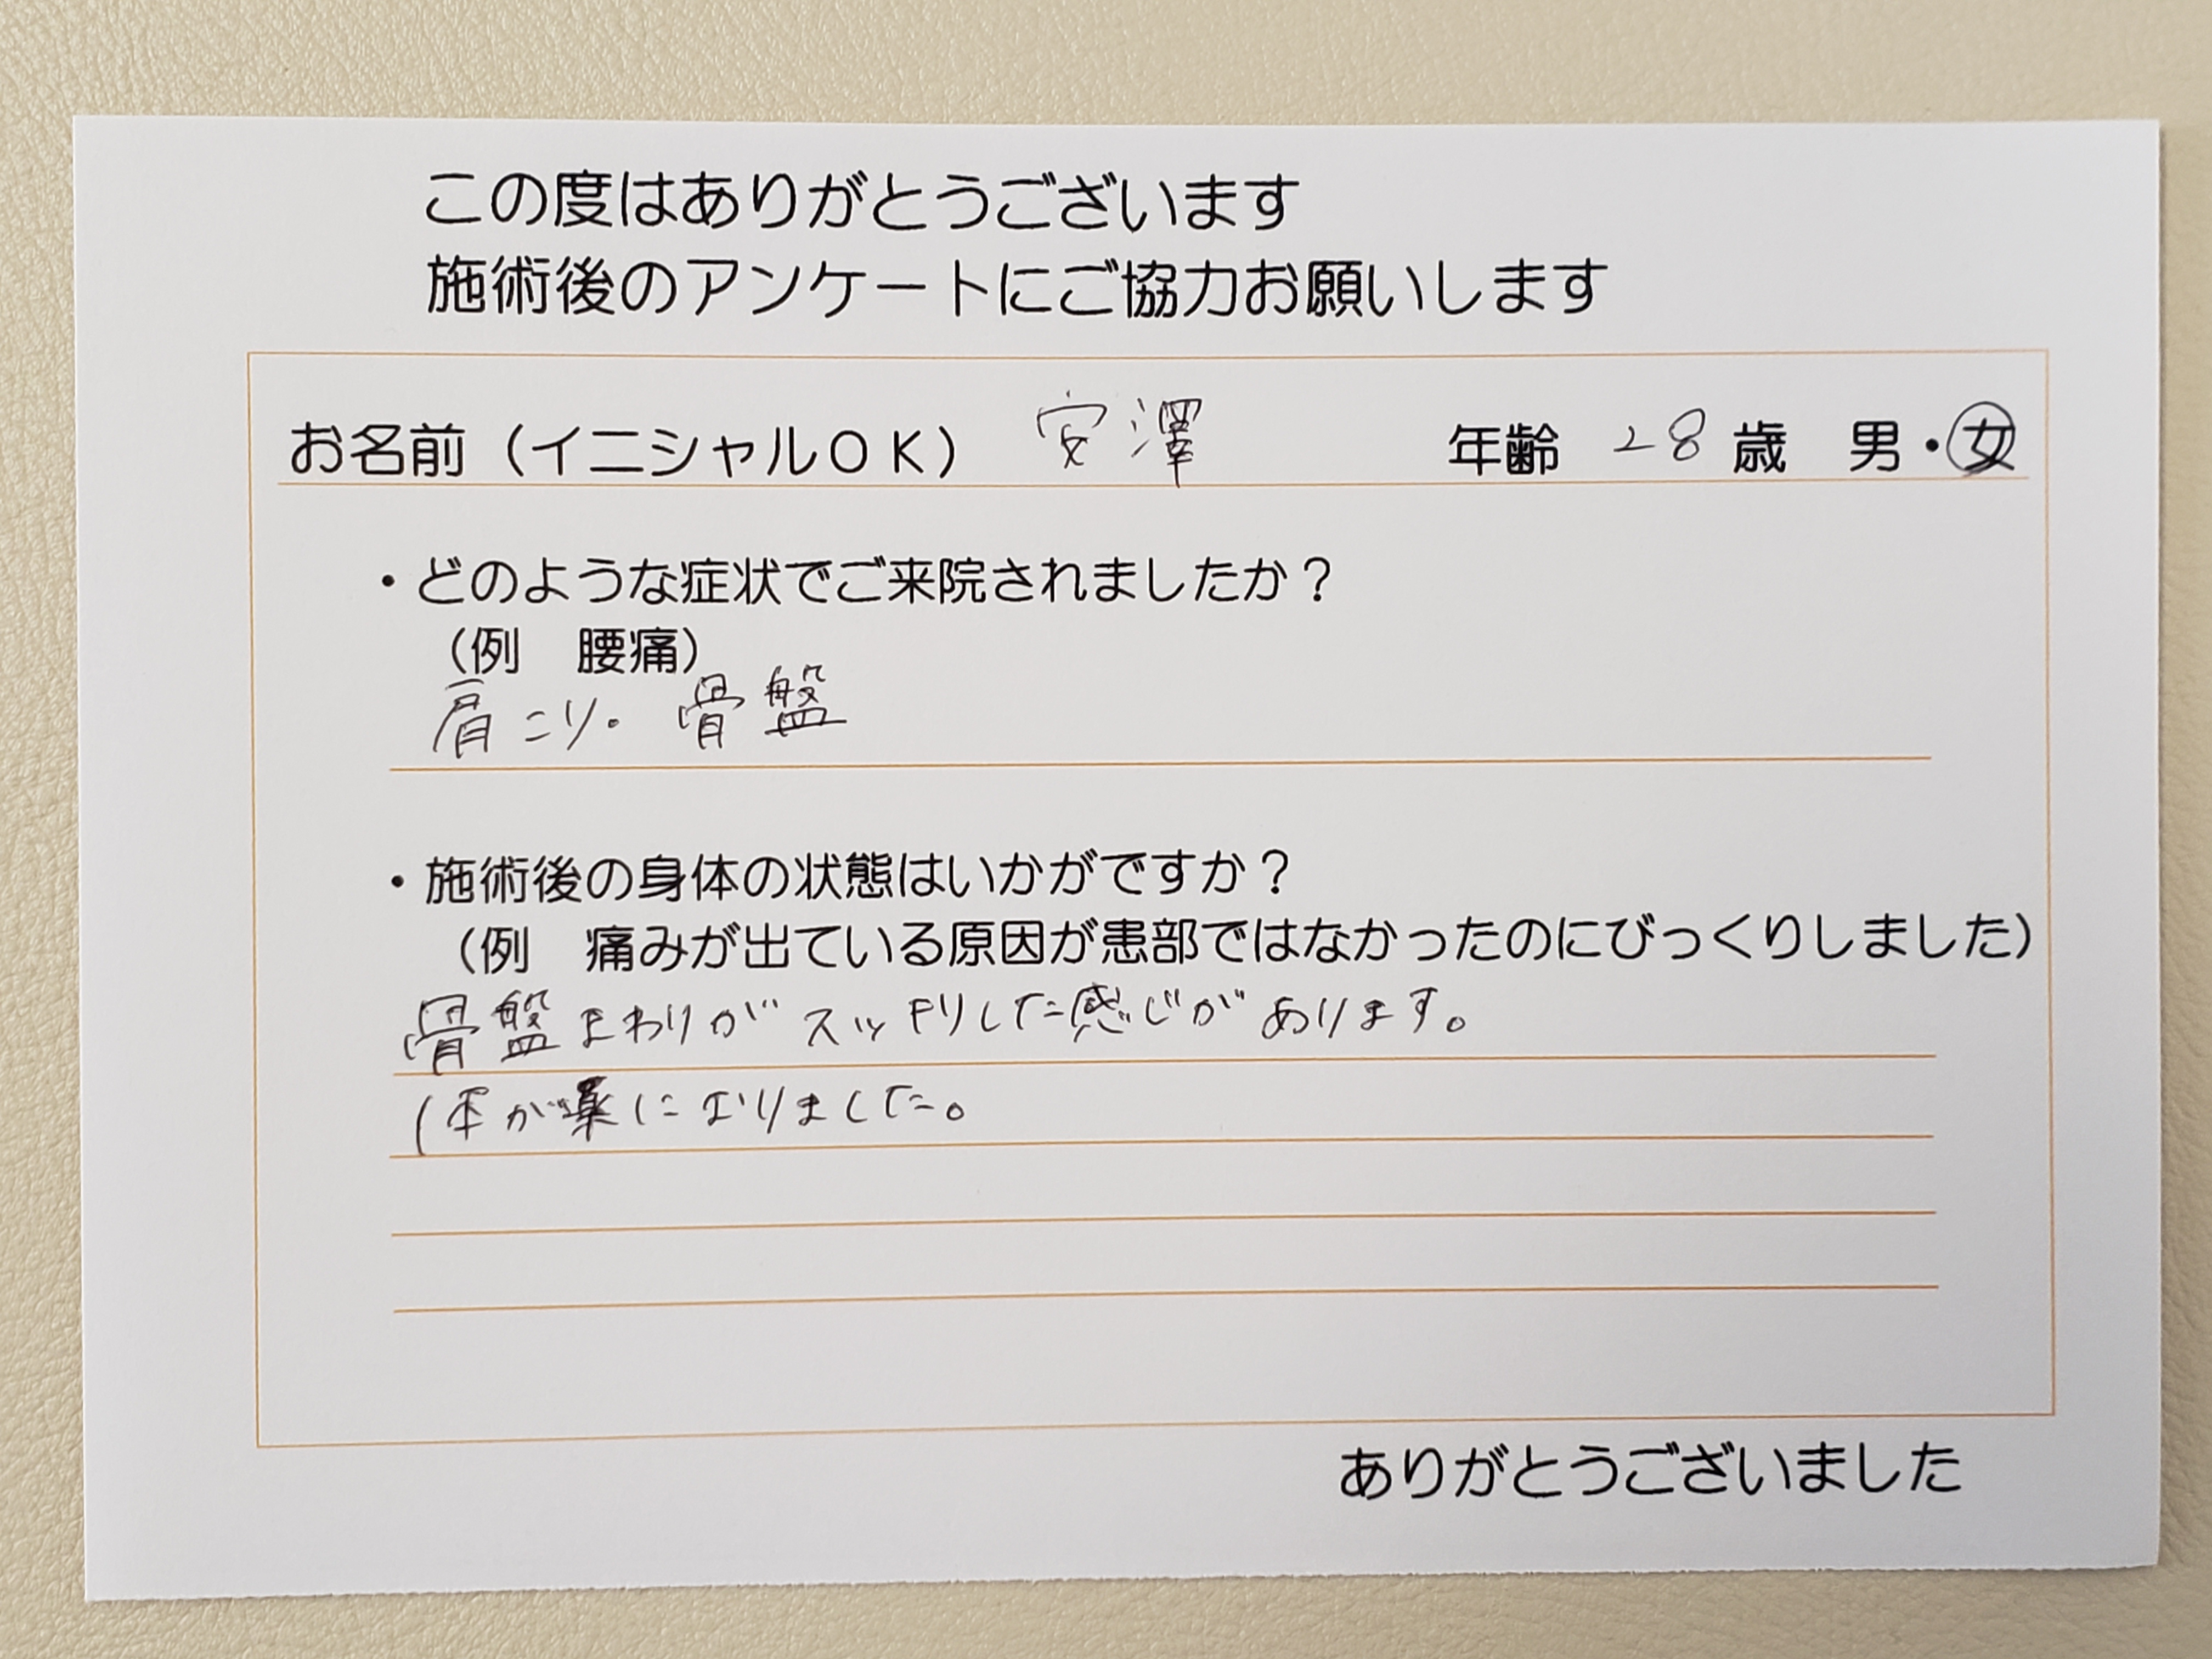 この度はありがとうございます
施術後のアンケートにご協力お願いします
お名前（イニシャルＯＫ） 安澤 年齢 28 歳 男・女
・どのような症状でご来院されましたか？
（例　腰痛）
肩こり。骨盤
・施術後の身体の状態はいかがですか？
（例　痛みが出ている原因が患部ではなかったのにびっくりしました）
骨盤まわりがスッキリした感じがあります。
体が楽になりました。
ありがとうございました